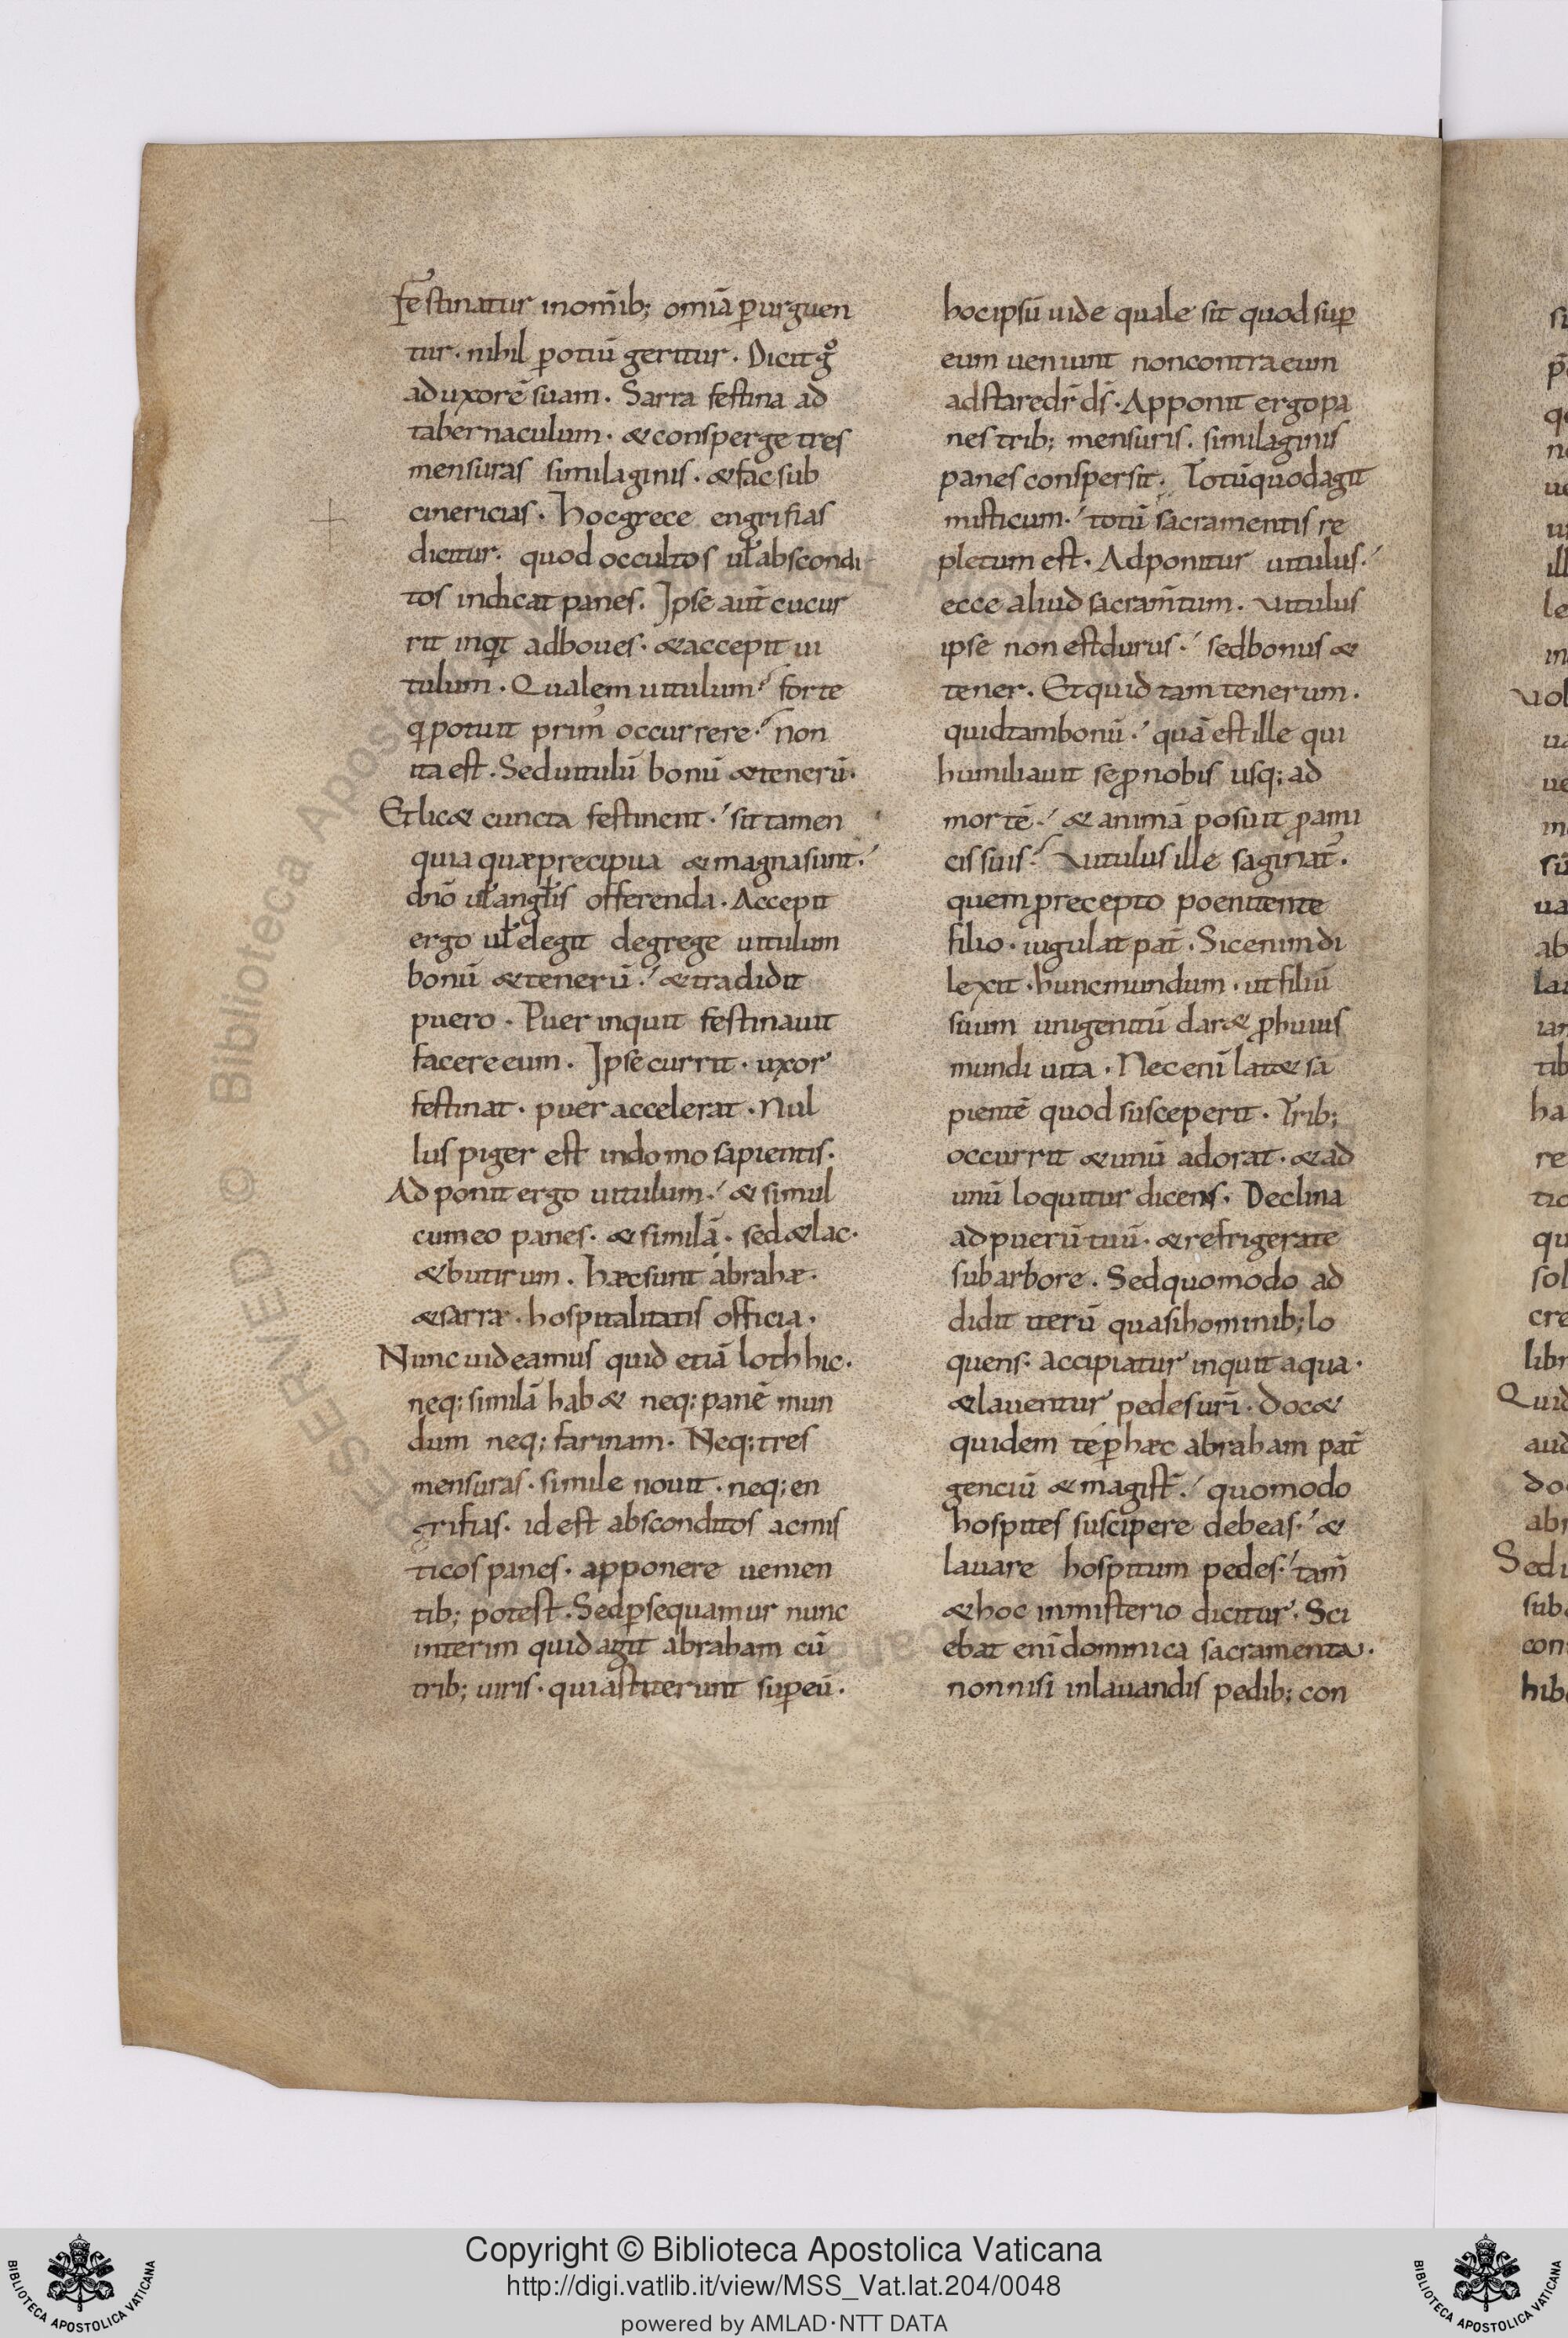 festinatur inom̄ib; om̄ia ꝑurguen
tur. nihil ꝑotiū geritur. Dicit gͦ
ad uxorē suam. Sarra festina ad
tabernaculum. & consperge tres
mensuras similaginis. & fac sub
cinericias. Hoc grece engrifias
dicitur. quod occultos ul̄ abscondi
tos indicat panes. Ipse aut̄ cucur
rit inqt̄ ad boues. & accepit ui
tulum. Qualem uitulum? forte
q potuit prim̄ occurrere. non
ita est. Sed uitulū bonū & tenerū.
Et lic& cuncta festinent. sit tamen
quia quæ precipua & magna sunt.
dn̄o ul̄ angl̄is offerenda. Accepit
ergo ul̄ elegit de grege uitulum
bonū & tenerū. & tradidit
puero. Puer inquit festinauit
facere eum. Ipse currit. uxor
festinat. puer accelerat. Nul
lus piger est in domo sapientis.
Adponit ergo uitulum. & simul
cum eo panes. & similā. sed & lac.
& butirum. Hæc sunt abrahæ.
& sarræ. hospitalitatis officia.
Nunc uideamus quid etiā loth hic.
neq; similā hab& neq; panē mun
dum neq; farinam. Neq; tres
mensuras. simile nouit. neq; en
grifias. id est absconditos ac mis
ticos panes. apponere uenien
tib; potest. Sed ꝑsequamur nunc
interim quid agit abraham cū
trib; uiris. qui astiterunt suꝑ eū.
hoc ipsū uide quale sit quod suꝑ
eum ueniunt non contra eum
adstare dr̄ dš. Apponit ergo pa
nes trib; mensuris. similaginis
panes conspersit. Totū quod agit
misticum. totū sacramentis re
pletum est. Adponitur uitulus.
ecce aliud sacram̄tum. Uitulus
ipse non est durus. sed bonus &
tener. Et quid tam tenerum.
quid tam bonū. quā est ille qui
humiliauit se ꝓ nobis usq; ad
mortē. & animā posuit ꝓ ami
cis suis? Uitulus ille saginat᷒.
quem ꝓ recepto poenitente
filio. iugulat pat̄. Sic enim di
lexit. hunc mundum. ut filiū
suum unigenitū dar& ꝓ huius
mundi uita. Nec enī lat& sa
pientē quod susceperit. Trib;
occurrit & unū adorat. & ad
unū loquitur dicens. Declina
ad puerū tuū. & refrigerate
sub arbore. Sed quomodo ad
didit iterū quasi hominib; lo
quens. accipiatur inquit aqua.
& lauentur pedes ur̄i. Doc&
quidem te ꝑ hæc abraham pat̄
genciū & magist̄. quomodo
hospites suscipere debeas. &
lauare hospitum pedes. tam̄
& hoc in misterio dicitur. Sci
ebat enī dominica sacramenta.
non nisi in lauandis pedib; con
Copyright © Biblioteca Apostolica Vaticana
http://digi.vatlib.it/view/MSS_Vat.lat.204/0048
powered by AMLAD·NTT DATA